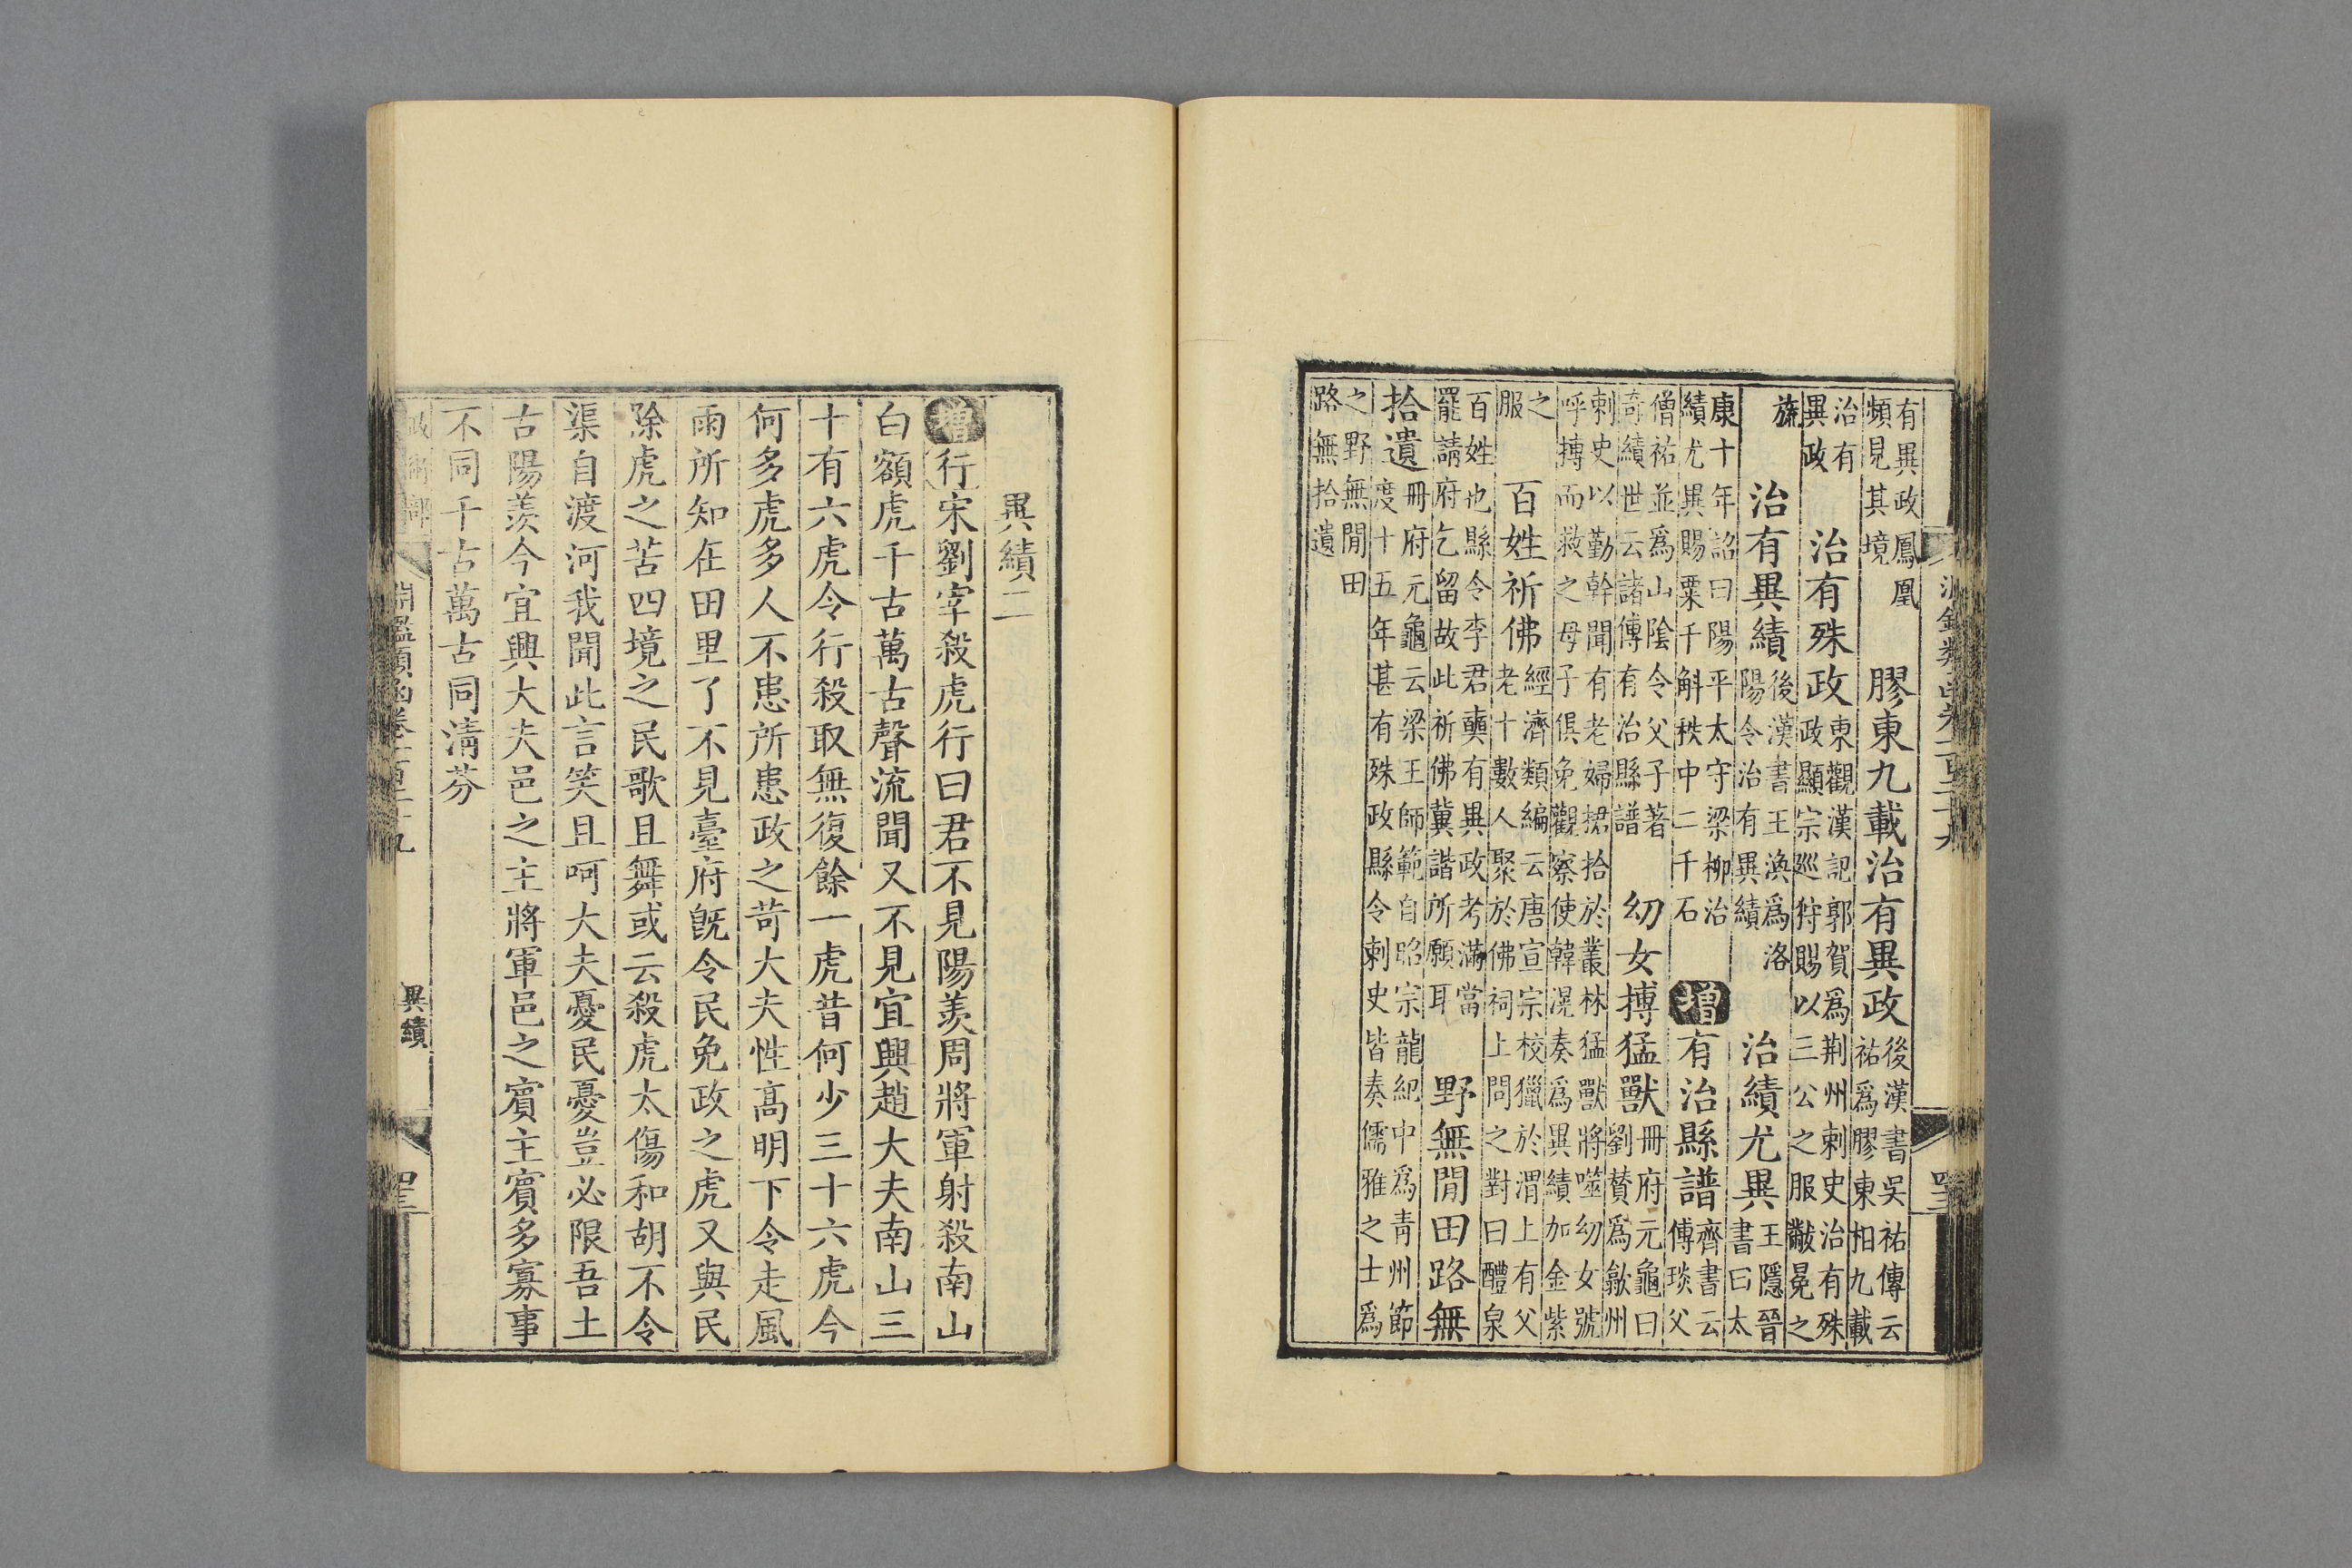 有異政鳳凰
頻見其境
膠東九載治有異政
後漢書吳祐傳云
祐爲膠東相九載
治有
異政
治有殊政
東觀漢記郭賀爲荆州刺史治有殊
政顯宗巡狩賜以三公之服黻冕之
旒
治有異績
後漢書王渙爲洛
陽令治有異績
治績尤異
王隱晉
書曰太
康十年詔曰陽平太守梁柳治
績尤異賜粟千斛秩中二千石
增
有治縣譜
齊書云
傅琰父
僧祐並爲山陰令父子著
奇績世云諸傅有治縣譜
幼女搏猛獸
冊府元龜曰
劉贊爲歙州
刺史以勤幹聞有老婦捃拾於叢林猛獸將噬幼女號
呼搏而救之母子俱免觀察使韓滉奏爲異績加金紫
之
服
百姓祈佛
經濟類編云唐宣宗校獵於渭上有父
老十數人聚於佛祠上問之對曰醴泉
百姓也縣令李君奭有異政考滿當
罷請府乞留故此祈佛冀諧所願耳
野無閒田路無
拾遺
冊府元龜云梁王師範自昭宗龍紀中爲青州節
度十五年甚有殊政縣令刺史皆奏儒雅之士爲
之野無閒田
路無拾遺
異績二
增行宋劉宰殺虎行曰君不見陽羨周將軍射殺南山
白額虎千古萬古聲流聞又不見宜興趙大夫南山三
十有六虎令行殺取無復餘一虎昔何少三十六虎今
何多虎多人不患所患政之苛大夫性高明下令走風
雨所知在田里了不見臺府旣令民免政之虎又與民
除虎之苦四境之民歌且舞或云殺虎太傷和胡不令
渠自渡河我聞此言笑且呵大夫憂民憂豈必限吾土
古陽羨今宜興大夫邑之主將軍邑之賓主賓多寡事
不同千古萬古同清芬
淵鑑類函卷一百二十九
異績